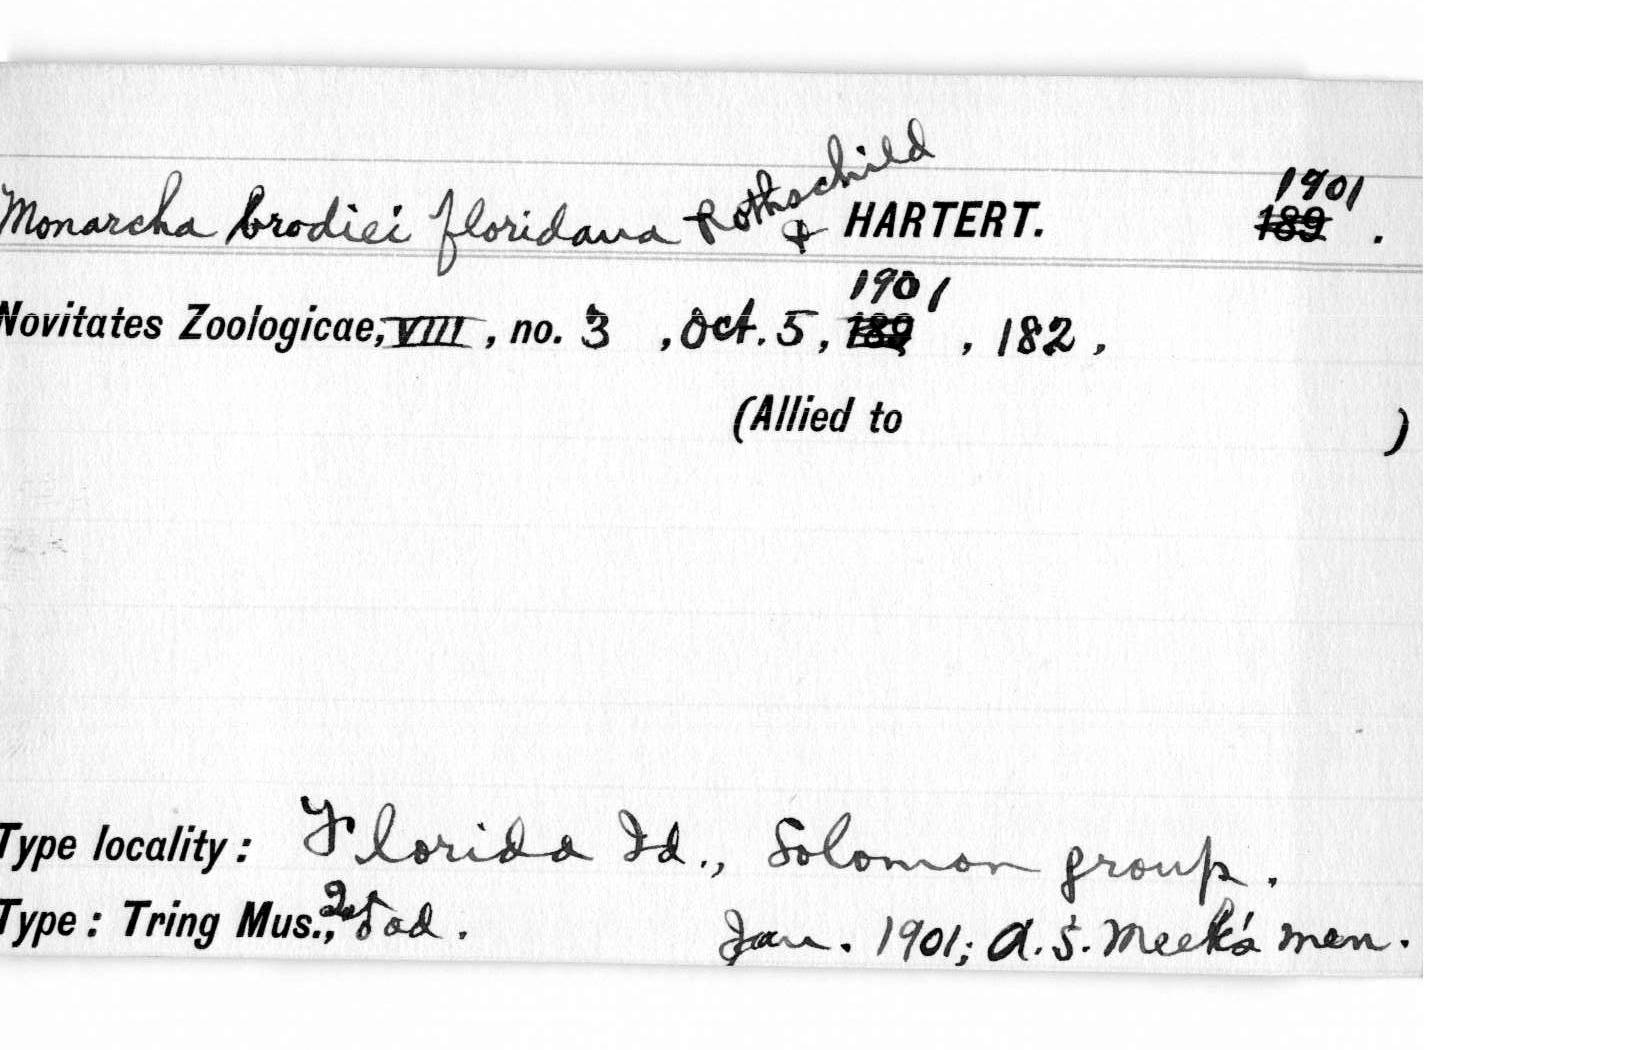 Monarcha brodiei floridana Rothschild & HARTERT. 1901 189 .
Novitates Zoologicae, VIII, no. 3 , Oct. 5, 1901 189 , 182 ,
(Allied to )
Type locality: Florida Id., Solomon group.
Type: Tring Mus., ad. Jan. 1901; A. S. Meek's men.